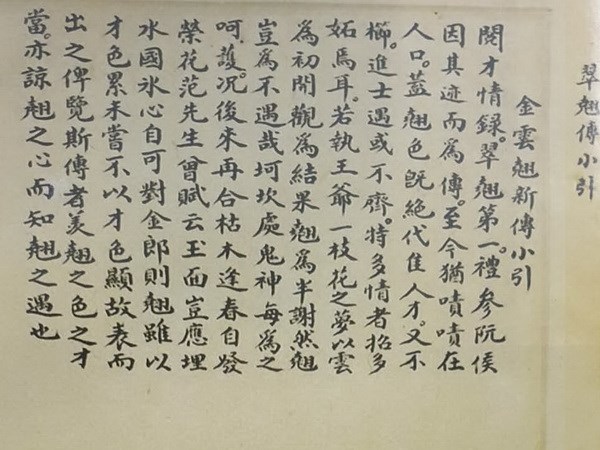 翠翹傳小引
金雲翹新傳小引
閱才情錄。翠翹第一。禮參阮侯
因其迹而爲傳。至今猶嘖嘖在
人口。蓋翹色旣絶代佳人才。又不
櫛。進士遇或不齊。特多情者招多
妬焉耳。若執王爺一枝花之夢以雲
爲初開觀爲結果翹爲半謝然翹
豈爲不遇哉坷坎處鬼神每爲之
呵護。况後來再合枯木逢春自發
榮花范先生曾賦云玉面豈應埋
水國氷心自可對金郎則翹雖以
才色累未嘗不以才色顯故表而
出之俾覽斯傳者羨翹之色之才
當。亦諒翹之心而知翹之遇也